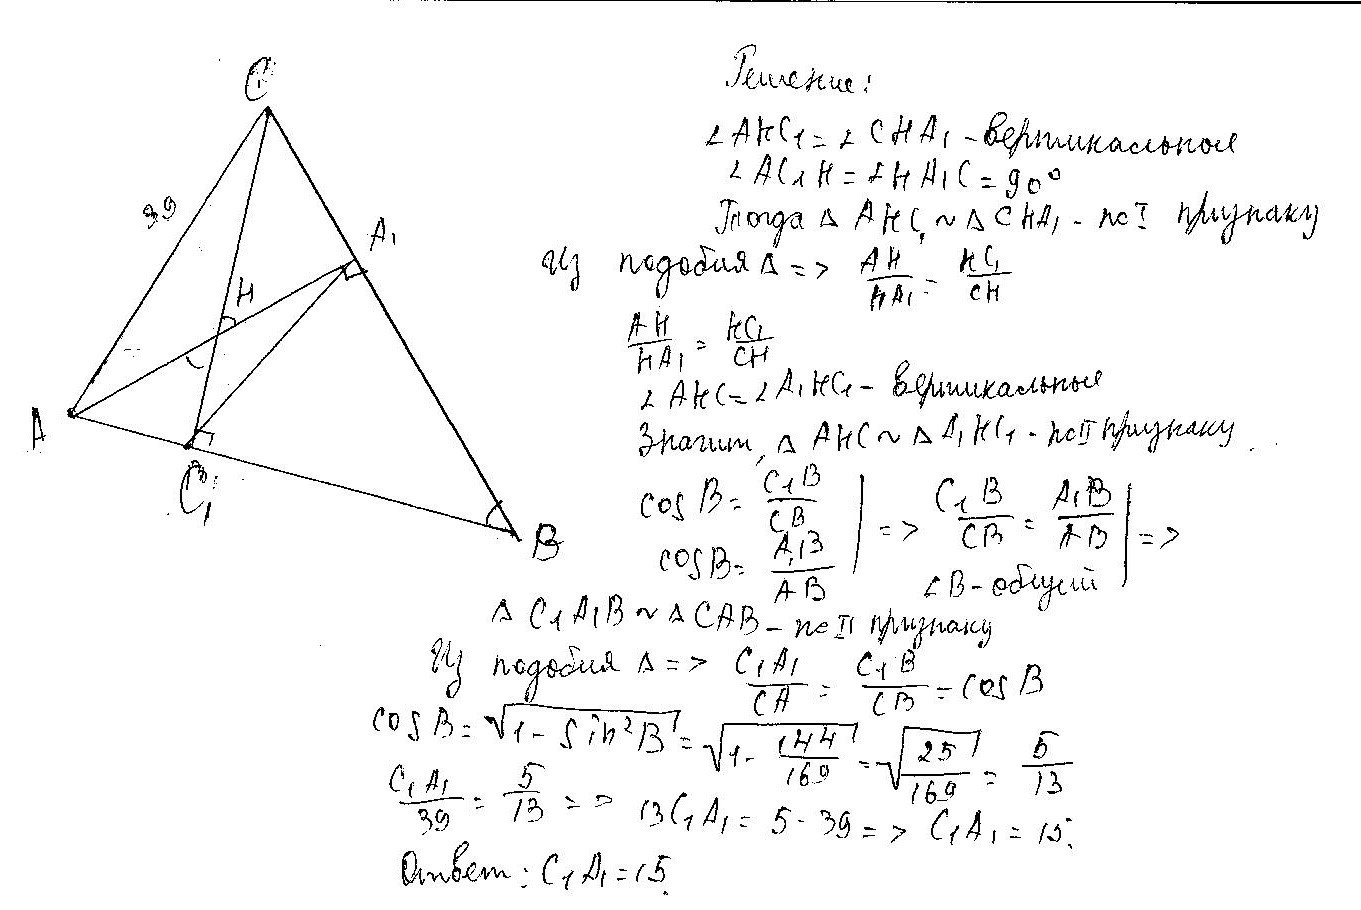 C
39
A₁
H
A
C₁
B
Решение:
∠AHC₁ = ∠CHA₁ - вертикальные
∠AC₁H = ∠HA₁C = 90°
Тогда Δ AHC₁ ~ Δ CHA₁ - по I признаку
Из подобия Δ => AH/HA₁ = HC₁/CH
AH/HA₁ = HC₁/CH
∠AHC = ∠A₁HC₁ - вертикальные
Значит, Δ AHC ~ Δ A₁HC₁ - по II признаку
cos B = C₁B/CB | => C₁B/CB = A₁B/AB | =>
cos B = A₁B/AB | ∠B - общий |
Δ C₁A₁B ~ Δ CAB - по II признаку
Из подобия Δ => C₁A₁/CA = C₁B/CB = cos B
cos B = √(1 - sin²B) = √(1 - 144/169) = √(25/169) = 5/13
C₁A₁/39 = 5/13 => 13C₁A₁ = 5 · 39 => C₁A₁ = 15.
Ответ: C₁A₁ = 15.